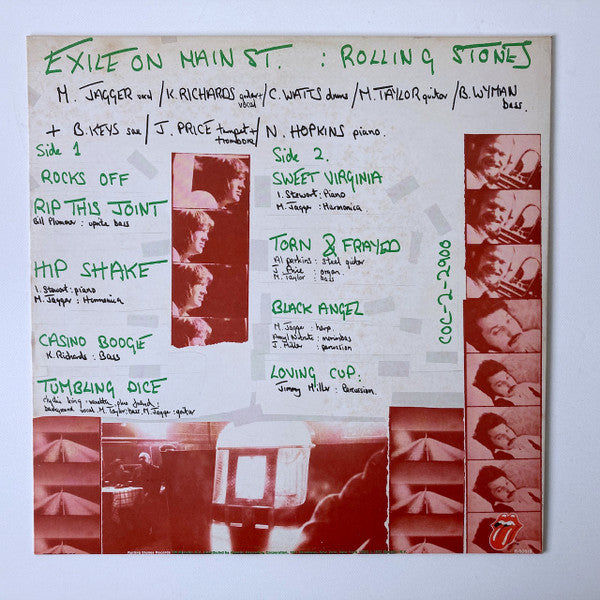 EXILE ON MAIN ST. : ROLLING STONES
M. JAGGER vocal / K. RICHARDS guitar + vocal / C. WATTS drums / M. TAYLOR guitar / B. WYMAN bass.
+ B. KEYS sax / J. PRICE trumpet + trombone / N. HOPKINS piano.
Side 1
ROCKS OFF
RIP THIS JOINT
Bill Plummer : uprite bass
HIP SHAKE
I. Stewart : piano
M. Jagger : Harmonica
CASINO BOOGIE
K. Richards : Bass
TUMBLING DICE
clydie king - vanetta plus friend :
background vocal. M. Taylor : bass. M. Jagger : guitar
Side 2.
SWEET VIRGINIA
I. Stewart : Piano
M. Jagger : Harmonica
TORN & FRAYED
Al perkins : steel guitar
J. Price : organ.
M. Taylor : bass
BLACK ANGEL
M. Jagger : harp.
Amyl Nitrate : marimbas
J. Miller : percussion
LOVING CUP :
Jimmy Miller : Percussion.
COC-2-2900
Rolling Stones Records